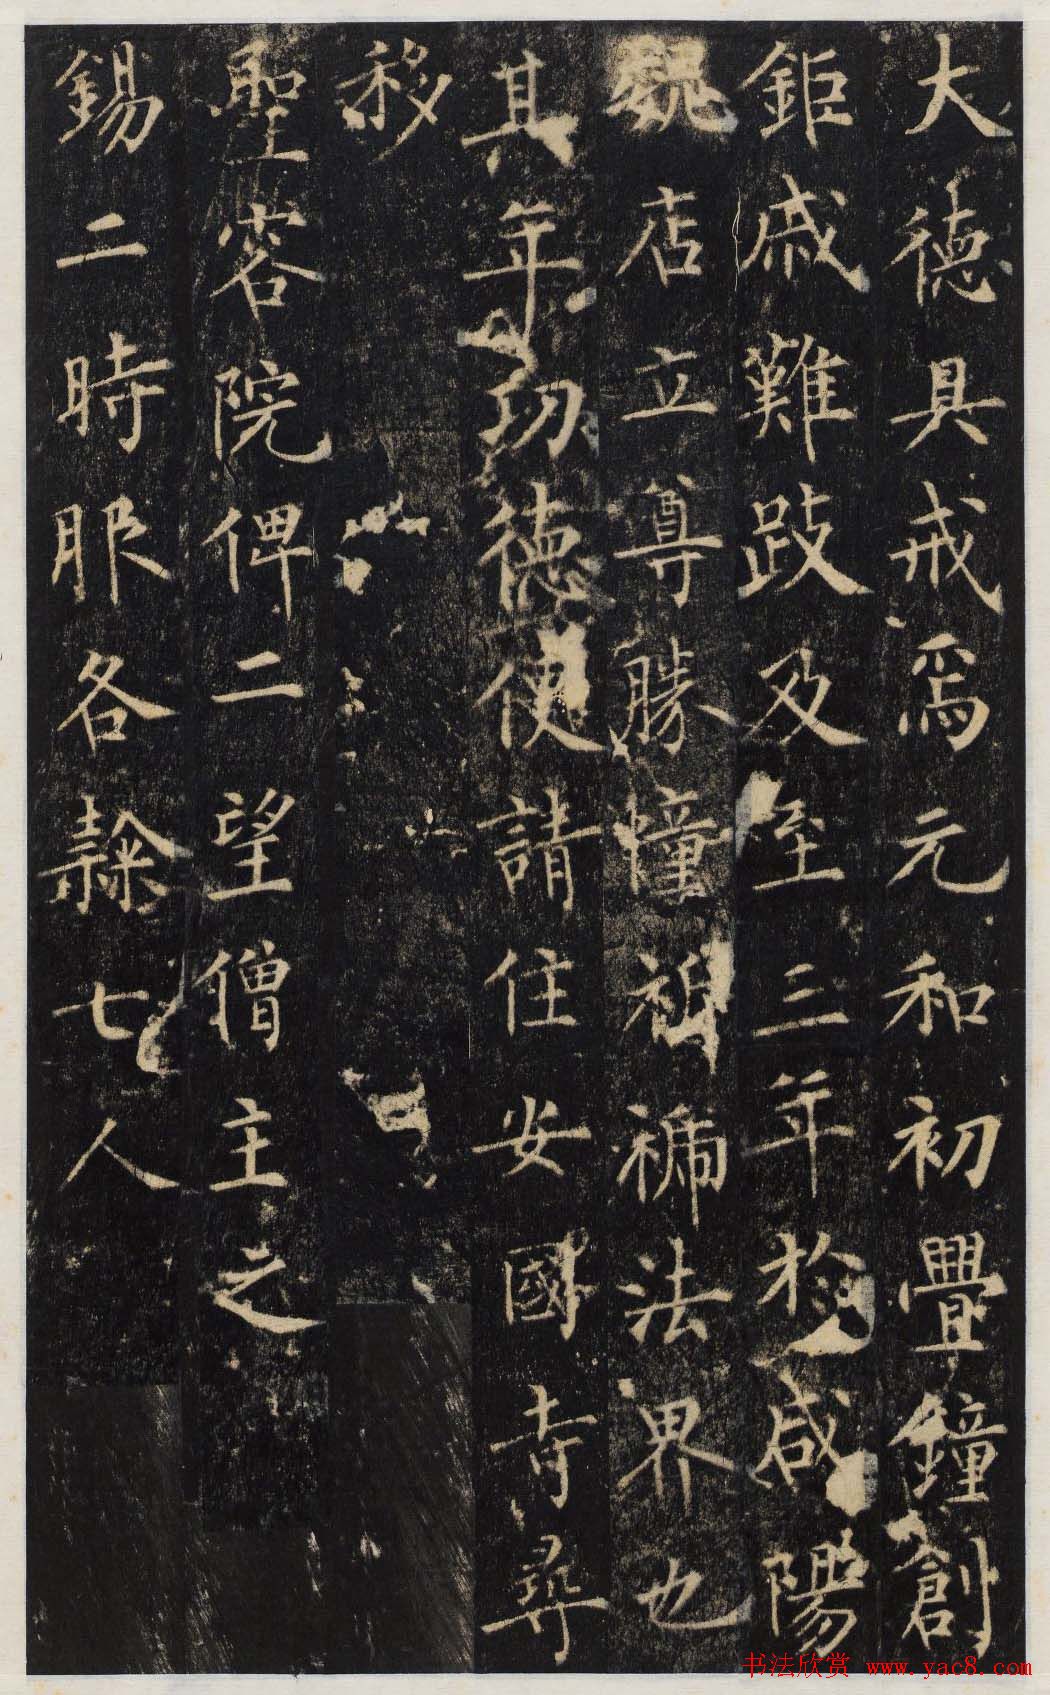 大德具戒爲元和初疊鐘創
鉅戚難跂及至三年於咸陽
魏店立尊勝幢法界也
其年功德使請住安國寺尋
移
聖容院俾二望僧主之
錫二時服各隸七人
书法欣赏 www.yac8.com